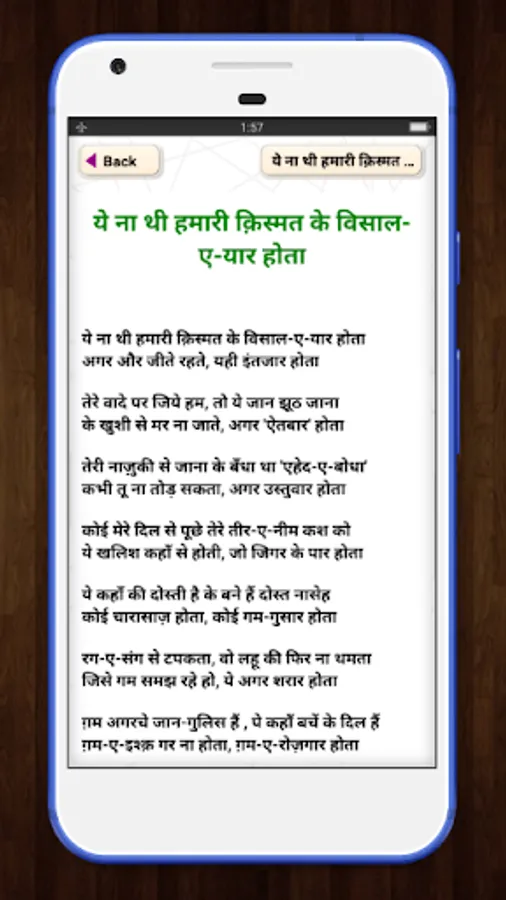 1:57
Back
ये ना थी हमारी क़िस्मत ...
ये ना थी हमारी क़िस्मत के विसाल-
ए-यार होता
ये ना थी हमारी क़िस्मत के विसाल-ए-यार होता
अगर और जीते रहते, यही इंतजार होता
तेरे वादे पर जिये हम, तो ये जान झूठ जाना
के खुशी से मर ना जाते, अगर 'ऐतबार' होता
तेरी नाज़ुकी से जाना के बँधा था 'एहेद-ए-बोधा'
कभी तू ना तोड़ सकता, अगर उस्तुवार होता
कोई मेरे दिल से पूछे तेरे तीर-ए-नीम कश को
ये खलिश कहाँ से होती, जो जिगर के पार होता
ये कहाँ की दोस्ती है के बने हैं दोस्त नासेह
कोई चारासाज़ होता, कोई गम-गुसार होता
रग-ए-संग से टपकता, वो लहू की फिर ना थमता
जिसे गम समझ रहे हो, ये अगर शरार होता
ग़म अगरचे जान-गुलिस हैं , पे कहाँ बचें के दिल हैं
ग़म-ए-इश्क़ गर ना होता, ग़म-ए-रोज़गार होता